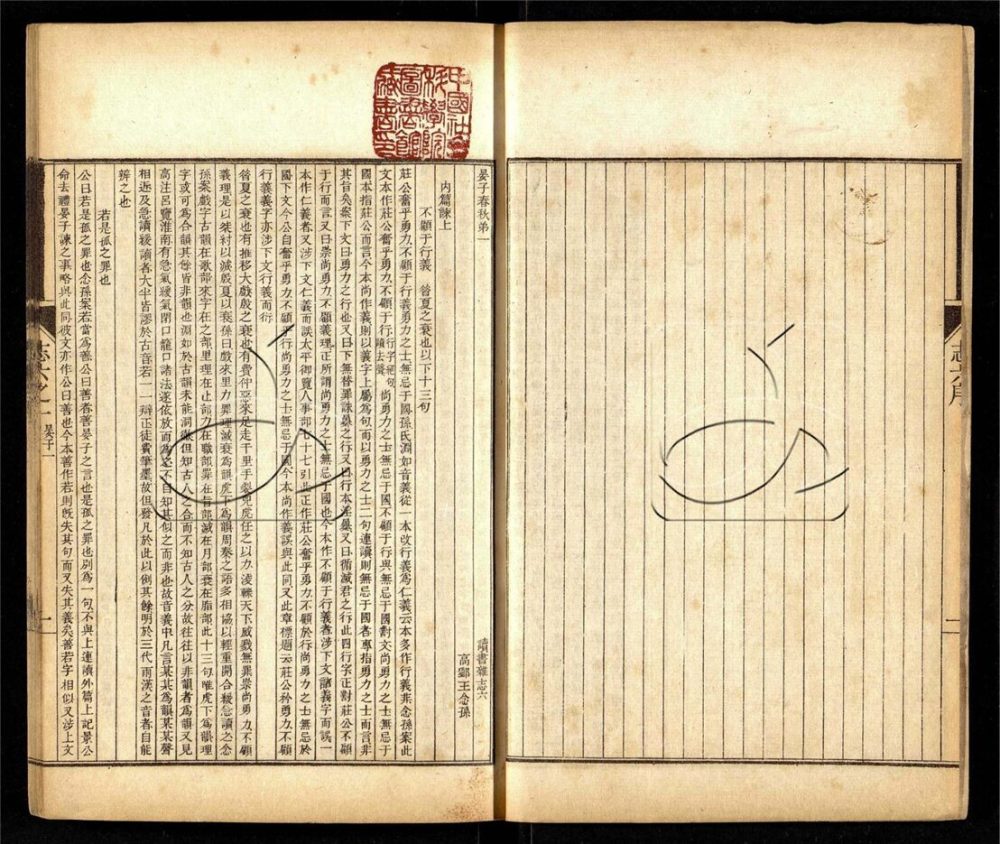 志六序
一
中國社會
科學院
圖書館
藏書印
晏子春秋弟一 讀書雜志六
高郵王念孫
內篇諫上
不顧于行義 昔夏之衰也以下十三句
莊公奮乎勇力不顧于行義勇力之士無忌于國孫氏淵如音義從一本改行義為仁義云本多作行義非念孫案此
文本作莊公奮乎勇力不顧于行行字絕句讀去聲尚勇力之士無忌于國不顧于行與無忌于國對文尚勇力之士無忌于
國本指莊公而言今本尚作義則以義字上屬為句而以勇力之士二句連讀則無忌于國者專指勇力之士而言非
其旨矣案下文曰勇力之行也又曰下無替罪誅暴之行又曰行本淫暴又曰循滅君之行此四行字正對莊公不顧
于行而言又曰崇尚勇力不顧義理正所謂尚勇力之士無忌于國也今本作不顧于行義者涉下文諸義字而誤一
本作仁義者又涉下文仁義而誤太平御覽人事部七十七引此正作莊公奮乎勇力不顧於行尚勇力之士無忌於
國下文今公自奮乎勇力不顧乎行尚勇力之士無忌于國今本尚作義誤與此同又此章標題云莊公矜勇力不顧
行義義字亦涉下文行義而衍
昔夏之衰也有推移大戲殷之衰也有費仲惡來足走千里手裂兕虎任之以力淩轢天下威戮無罪崇尚勇力不顧
義理是以桀紂以滅殷夏以衰孫曰戲來里力罪理滅衰為韻虎下為韻周秦之語多相協以輕重開合緩急讀之念
孫案戲字古韻在歌部來字在之部里理在止部力在職部罪在旨部滅在月部衰在脂部此十三句唯虎下為韻理
字或可為合韻其餘皆非韻也淵如於古韻未能洞徹但知古人之合而不知古人之分故往往以非韻者為韻又見
高注呂覽淮南有急氣緩氣閉口籠口諸法遂依放而為之不自知其似之而非也故音義中凡言某某為韻某某聲
相近及急讀緩讀者大半皆謬於古音若一一辯正徒費筆墨故但發凡於此以例其餘明於三代兩漢之音者自能
辨之也
若是孤之罪也
公曰若是孤之罪也念孫案若當為善公曰善者善晏子之言也是孤之罪也別為一句不與上連讀外篇上記景公
命去禮晏子諫之事略與此同彼文亦作公曰善也今本善作若則既失其句而又失其義矣善若字相似又涉上文
志六之一
晏子一
一